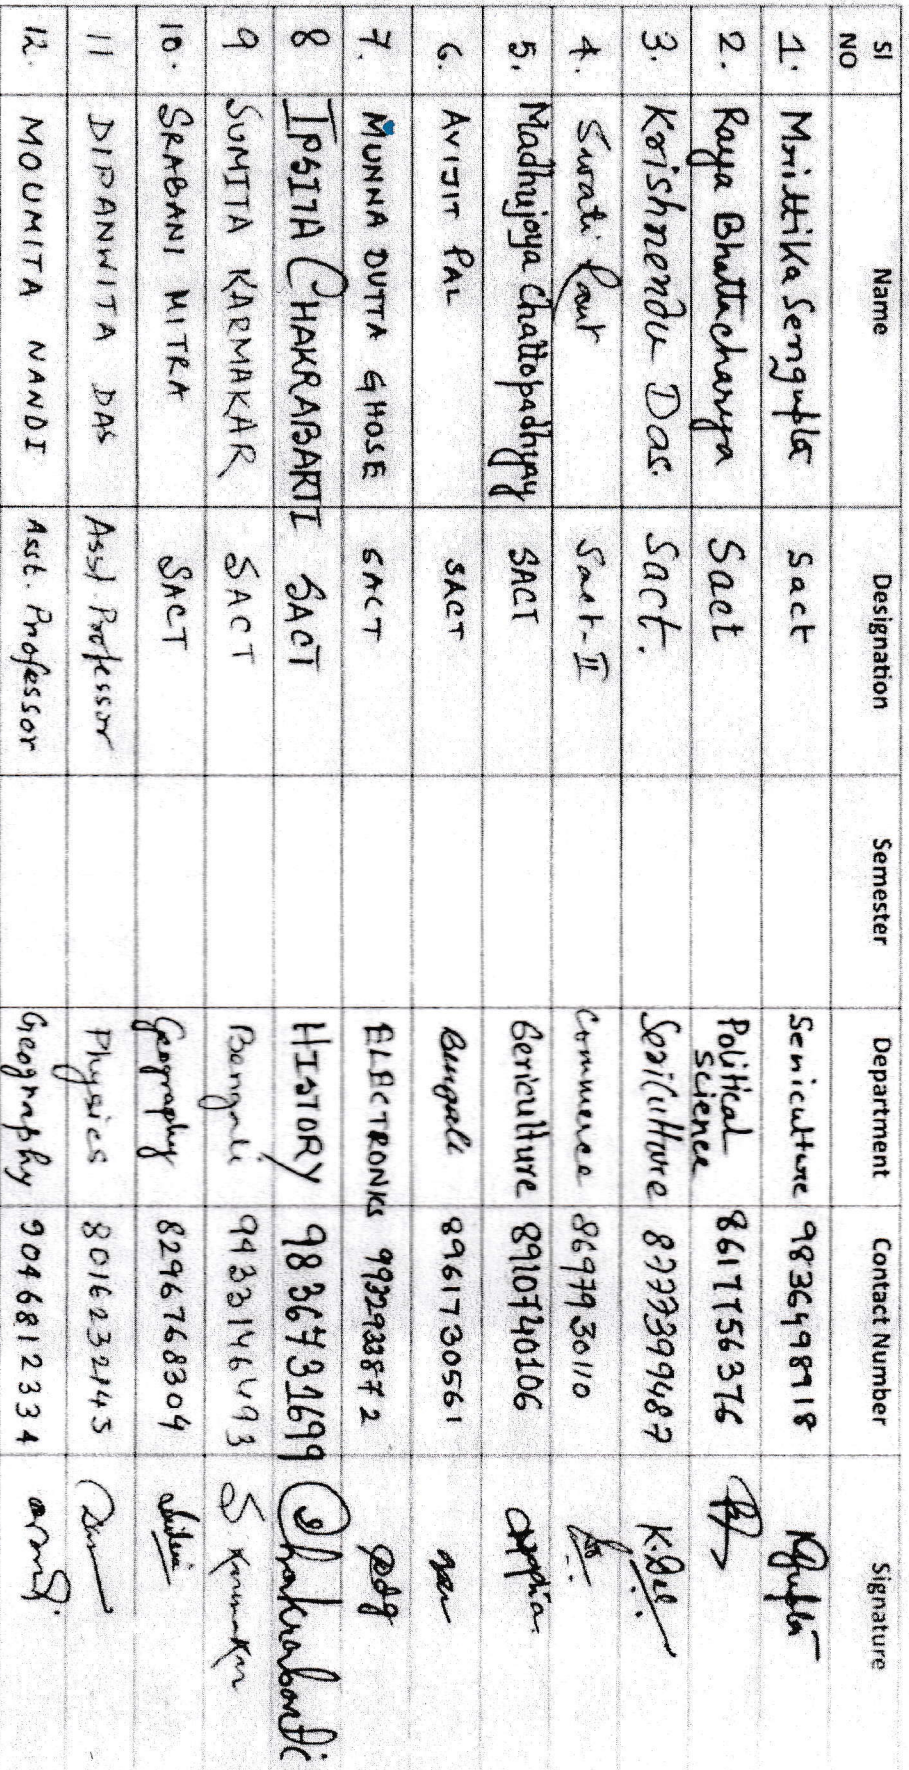 Sl NO Name Designation Semester Department Contact Number Signature
1. Mrittika Sengupta Sact Sericulture 9836498918
2. Raya Bhattacharya Sact Political science 8617756376
3. Krishnendu Das. Sact. Sericulture 8777399487 K.Das
4. Swati Raut Sact-II Commerce 8697930110
5. Madhujoya Chattopadhyay SACT Sericulture 8910740106
6. AVIJIT PAL SACT Bengali 8961730561
7. MUNNA DUTTA GHOSE SACT ELECTRONKS 9932923872
8 IPSITA CHAKRABARTI SACT HISTORY 9836731699 Chakrabarti
9 SUMITA KARMAKAR SACT Bengali 9433146493 S Karmakar
10. SRABANI MITRA SACT Geography 8296768309
11 DIPANWITA DAS Asst. Professor Physics 8016232145
12. MOUMITA NANDI Asst. Professor Geography 9046812334